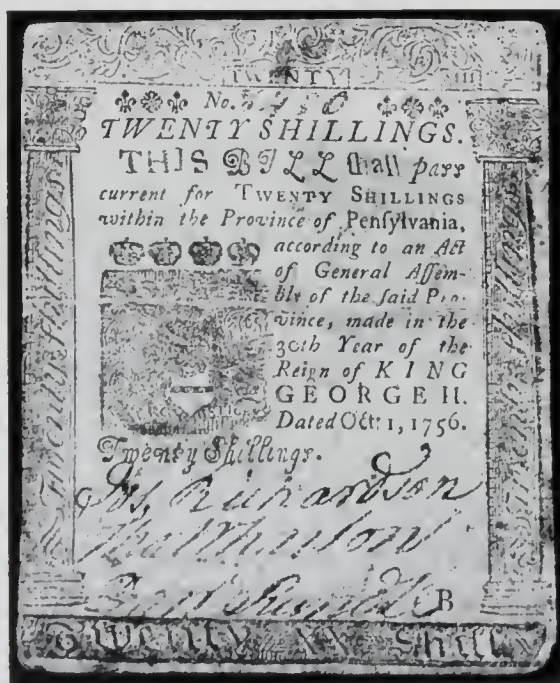 TWENTY
No.
TWENTY SHILLINGS.
THIS BILL ſhall paſs
current for TWENTY SHILLINGS
within the Province of Penſylvania,
according to an Act
of General Aſſem-
bly of the ſaid Pro-
vince, made in the
30th Year of the
Reign of KING
GEORGE II.
Dated Octr: 1, 1756.
Twenty Shillings.
Jos. Richardson
B
Twenty Shillings
Twenty Shillings
Twenty XX Shill